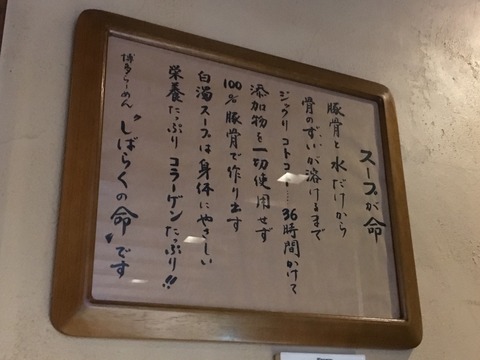 スープが命
豚骨と水だけから
骨のずいが溶けるまで
ジックリコトコト……36時間かけて
添加物を一切使用せず
100%豚骨で作り出す
白濁スープは身体にやさしい
栄養たっぷりコラーゲンたっぷり!!
博多らーめん〝しばらくの命〟です